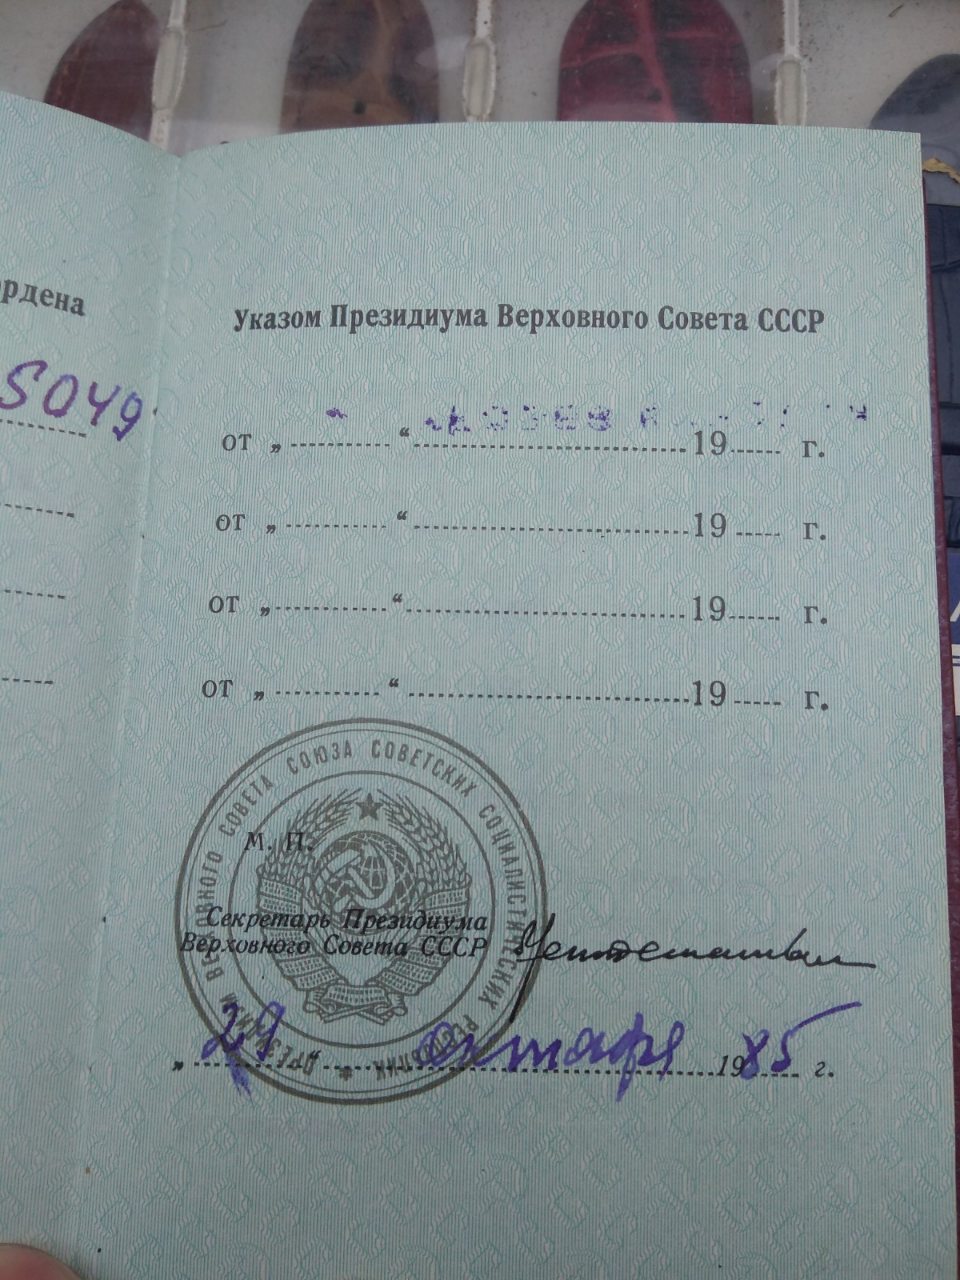 ордена
5049
Указом Президиума Верховного Совета СССР
от „ “ 19 г.
от „ “ 19 г.
от „ “ 19 г.
от „ “ 19 г.
ПРЕЗИДИУМ ВЕРХОВНОГО СОВЕТА СОЮЗА СОВЕТСКИХ СОЦИАЛИСТИЧЕСКИХ РЕСПУБЛИК
М. П.
Секретарь Президиума
Верховного Совета СССР
„29“ октября 1985 г.